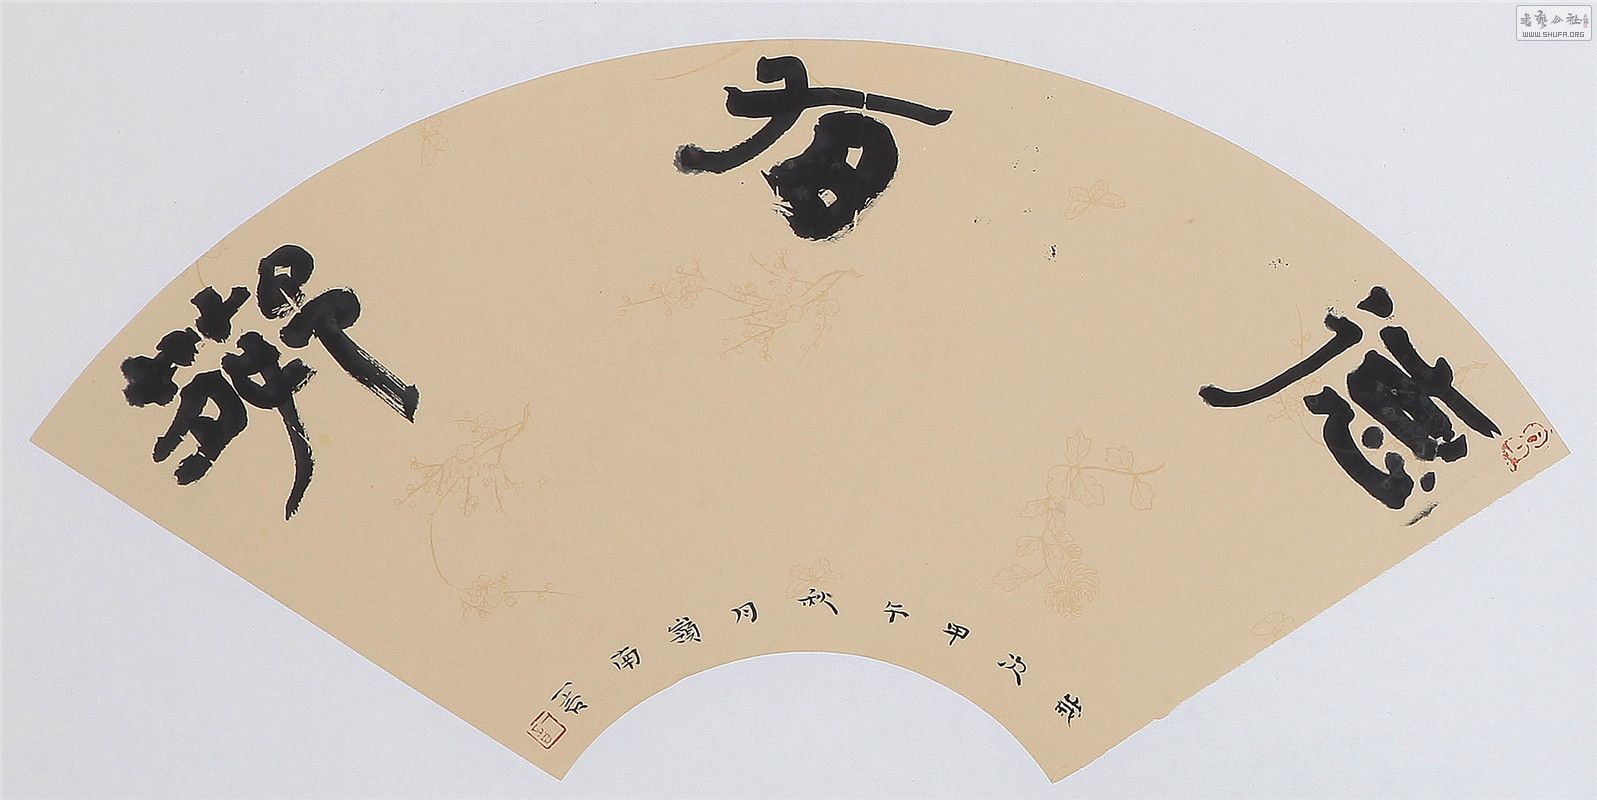 德有鄰
歲次甲午秋月嶺南
書藝公社
WWW.SHUFA.ORG